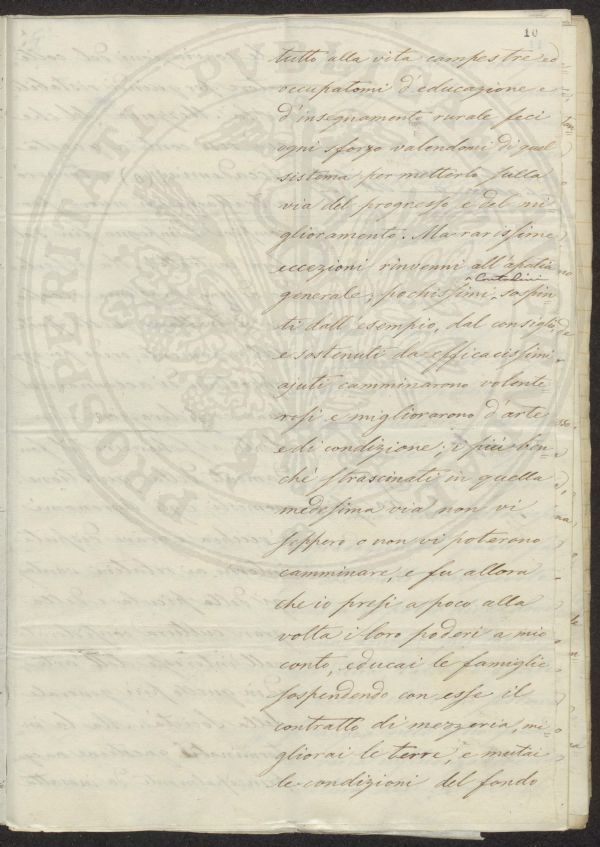 10
tutto alla vita campestre ed
occupatomi d'educazione e
d'insegnamento rurale feci
ogni sforzo valendomi di quel
sistema per metterlo sulla
via del progresso e del mi
glioramento. Ma rarissime
eccezioni rinvenni all'apatia
Contadini
generale; pochissimi, sospin
ti dall'esempio, dal consiglio
e sostenuti da efficacissimi
ajuti camminarono volonte
rosi e migliorarono d'arte
e di condizione; i più ben
chè strascinati in quella
medesima via non vi
seppero o non vi poterono
camminare, e fu allora
che io presi a poco alla
volta i loro poderi a mio
conto, educai le famiglie
sospendendo con esse il
contratto di mezzeria, mi
gliorai le terre, e mutai
le condizioni del fondo
PROSPERITATI PUBLICAE